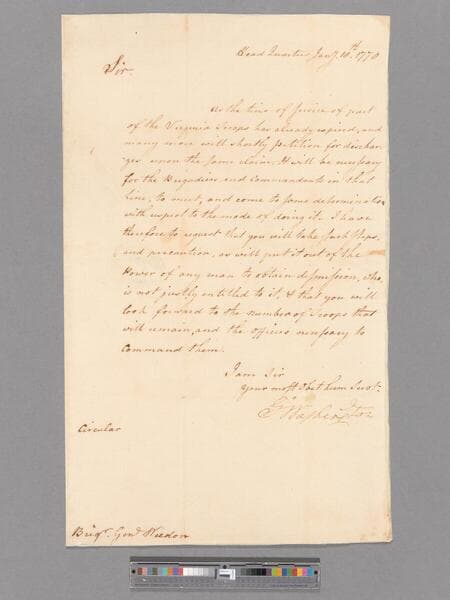 Head Quarters Jany. 10th. 1778
Sir.
As the time of service of part
of the Virginia Troops has already expired, and
many more will shortly petition for dischar-
ges upon the same claim, It will be necessary
for the Brigadiers and Commandants in that
line, to meet, and come to some determination
with respect to the mode of doing it. I have
therefore to request that you will take such steps,
and precaution, as will put it out of the
Power of any man to obtain dismission, who
is not justly entitled to it, & that you will
look forward to the number of Troops that
will remain, and the officers necessary to
command them.
I am Sir
Your most Obet. Hum Servt.
Go: Washington
Circular
Brigr. Genl. Weedon